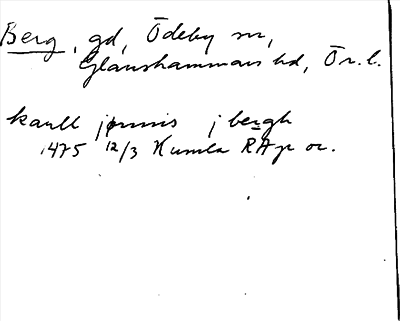 Berg, gd, Ödeby sn,
Glanshammars hd, Ör. l.
karll jpmnis j bergh
1475 12/3 Kumla RAp or.